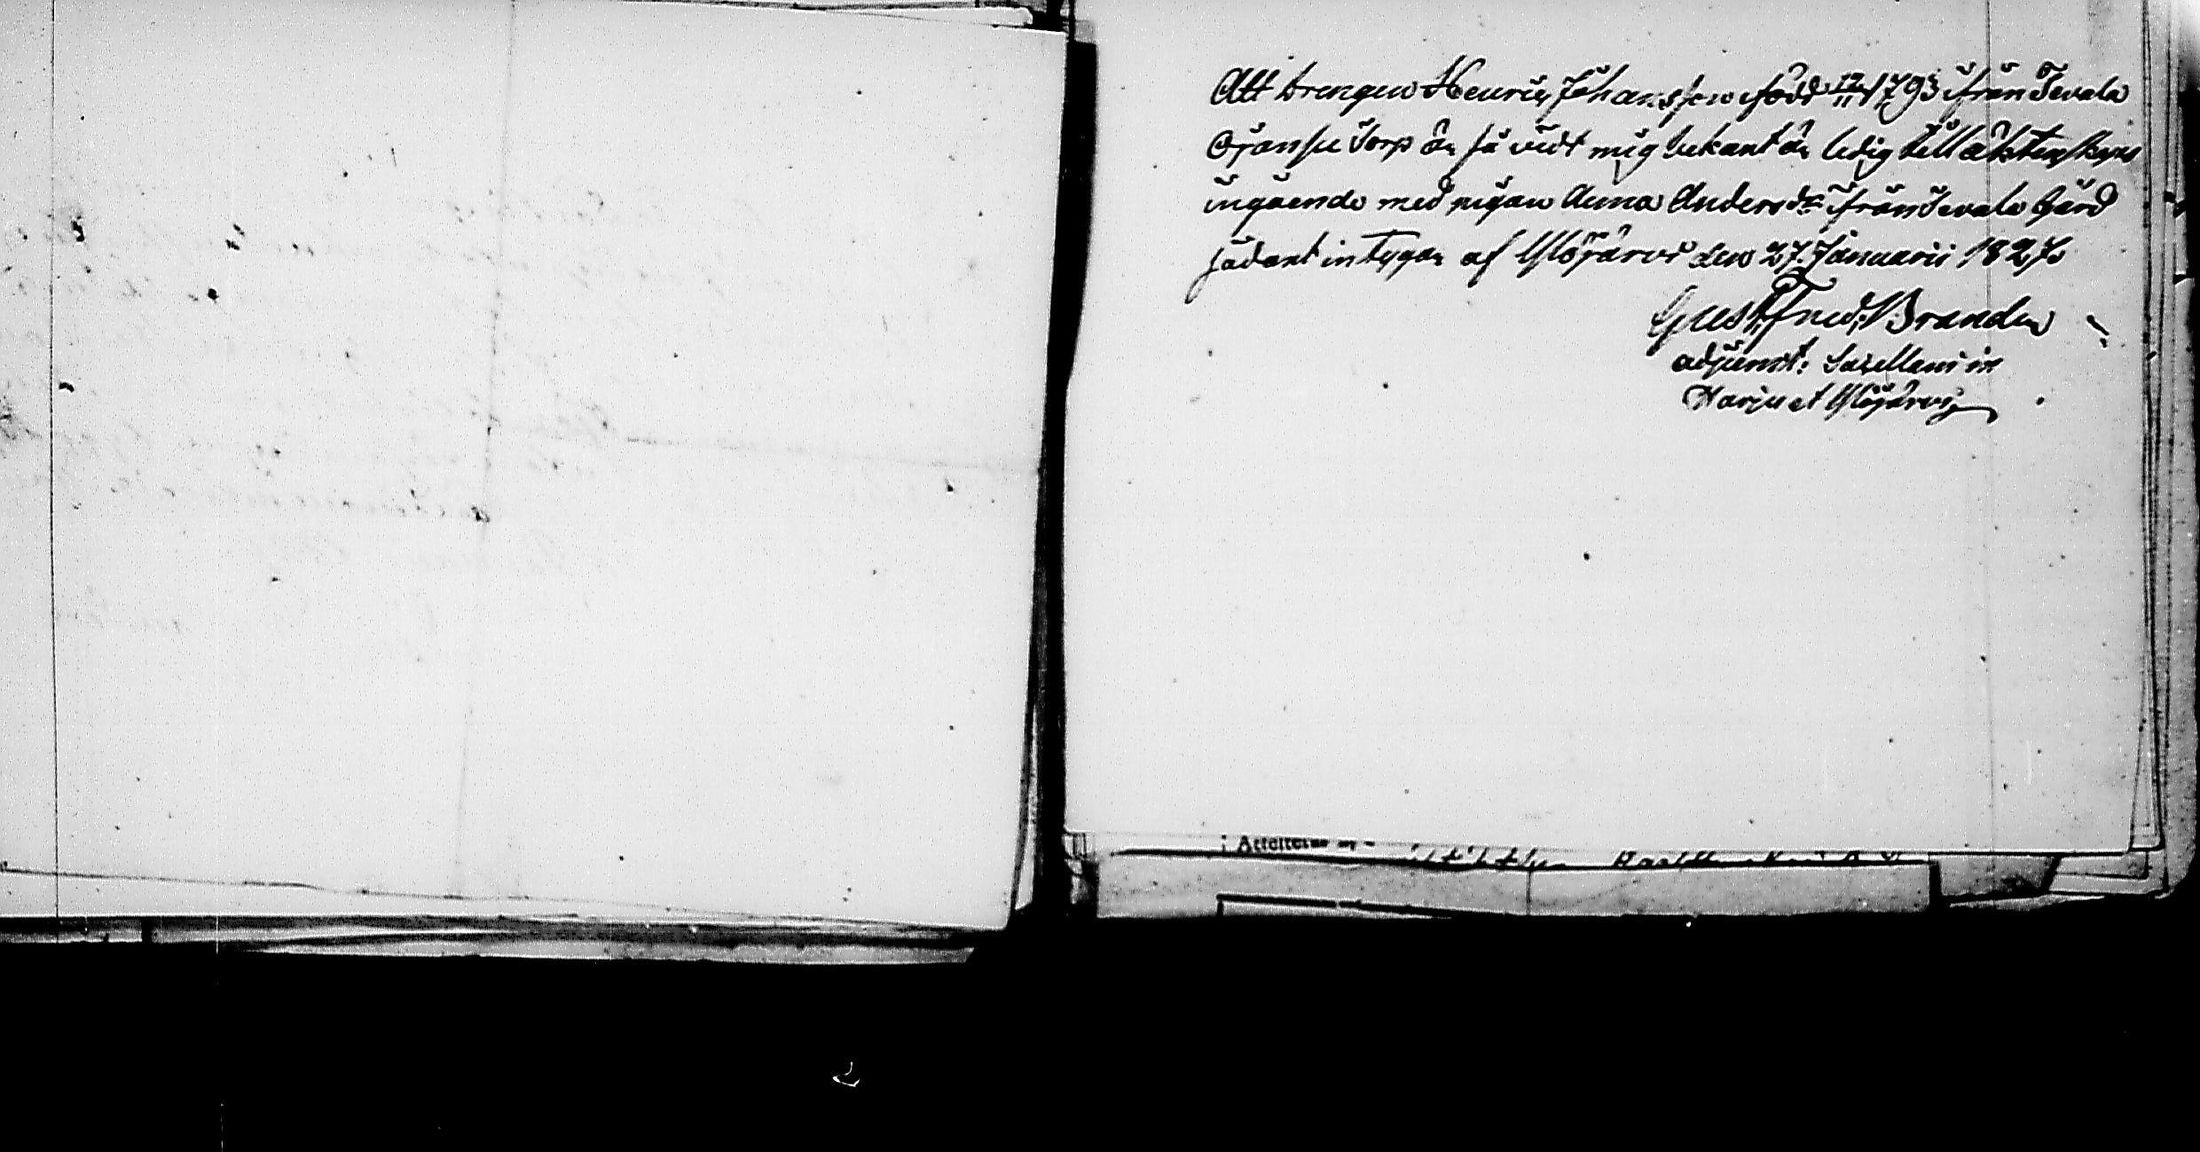 Att drengen Henric Johansson född 12/11 1793 ifrån Tevala
Ojansu Torp är så vidt mig bekant är ledig till äktenskaps
ingående med pigan Anna Andersdr ifrån Tevala Gård
sådant intygar af Ylöjärvi den 27 Januarii 1827.
Gust. Fred. Brander
adjunct: Sacellani in
Harju et Ylöjärvi